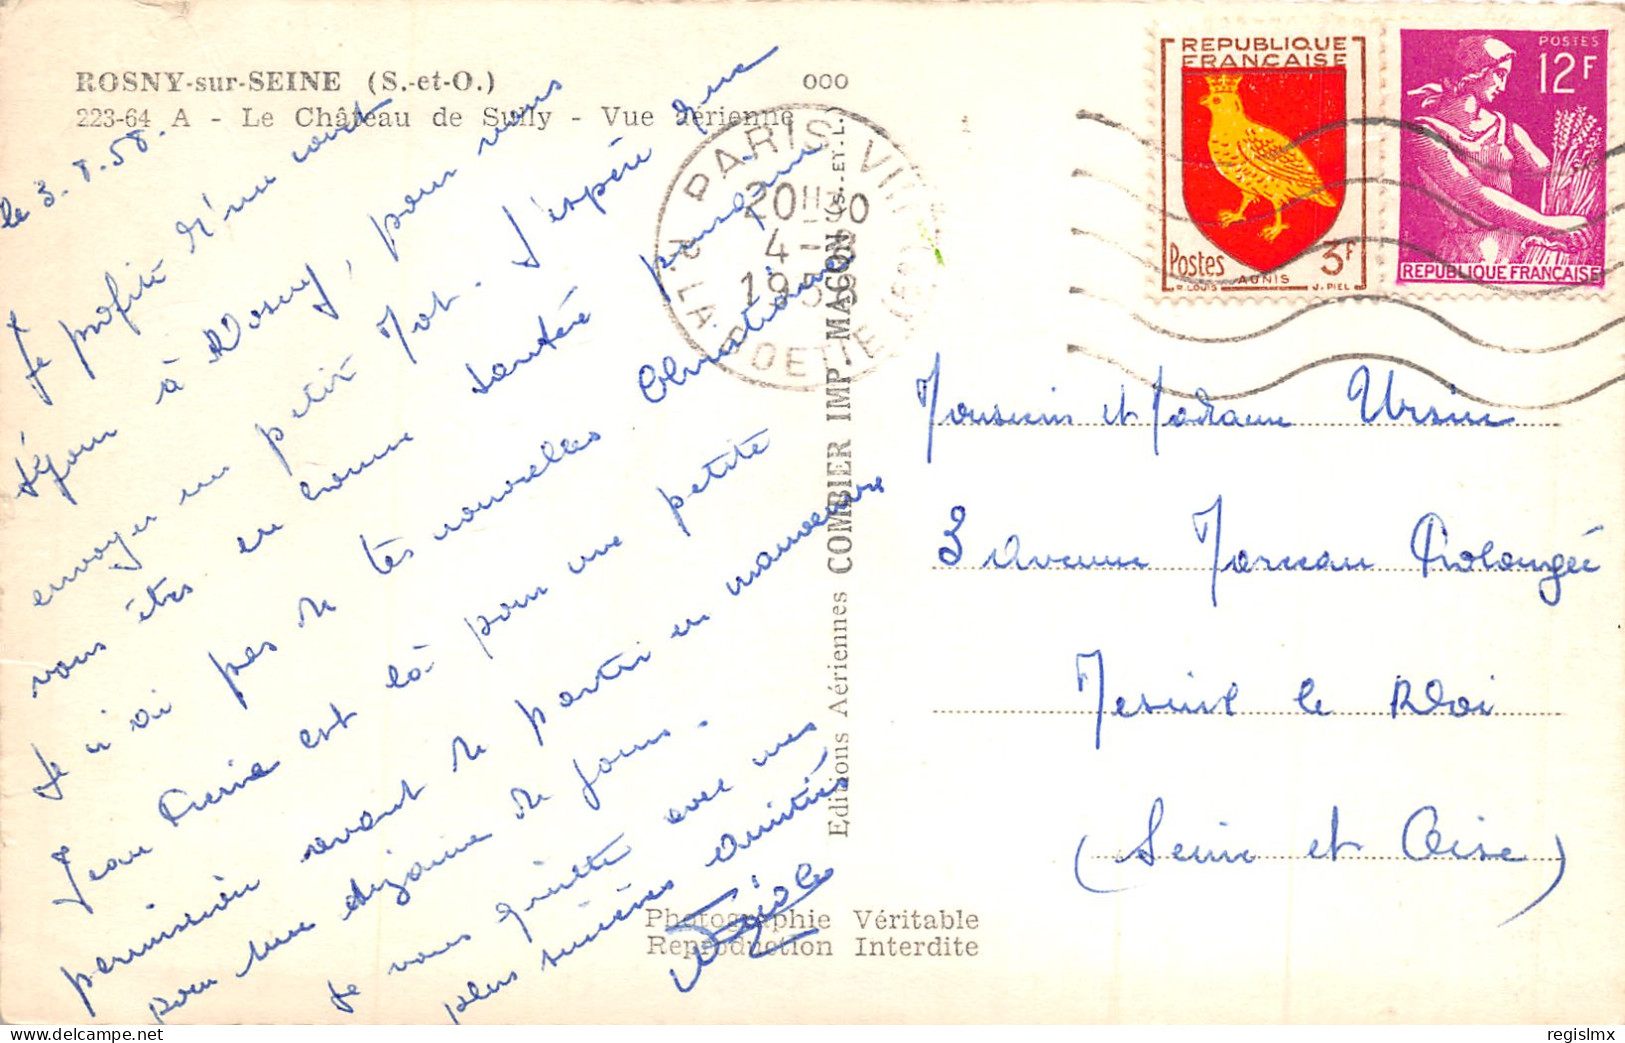 ROSNY-sur-SEINE (S.-et-O.)
223-64 A - Le Château de Sully - Vue aérienne
ooo
le 3.8.58.
Je profite d'un court
séjour à Rosny, pour vous
envoyer un petit Mot. J'espère que
vous êtes en bonne santé
Je n'ai pas de tes nouvelles Christiane
Jean Pierre est là pour une petite
permission avant de partir en manoeuvre
pour une dizaine de jours.
Je vous quitte avec mes
plus sincères amitiés
Editions Aériennes COMBIER IMP. MACON (S.-ET-L.)
Photographie Véritable
Reproduction Interdite
PARIS VIII
R. LA BOETIE (8e)
20 H 30
4
1958
REPUBLIQUE
FRANÇAISE
Postes 3F
AUNIS
R. LOUIS J. PIEL
POSTES
12F
REPUBLIQUE FRANÇAISE
Monsieur et Madame Ursin
3 Avenue Marceau Prolongée
Mesnil le Roi
(Seine et Oise)
regislmx